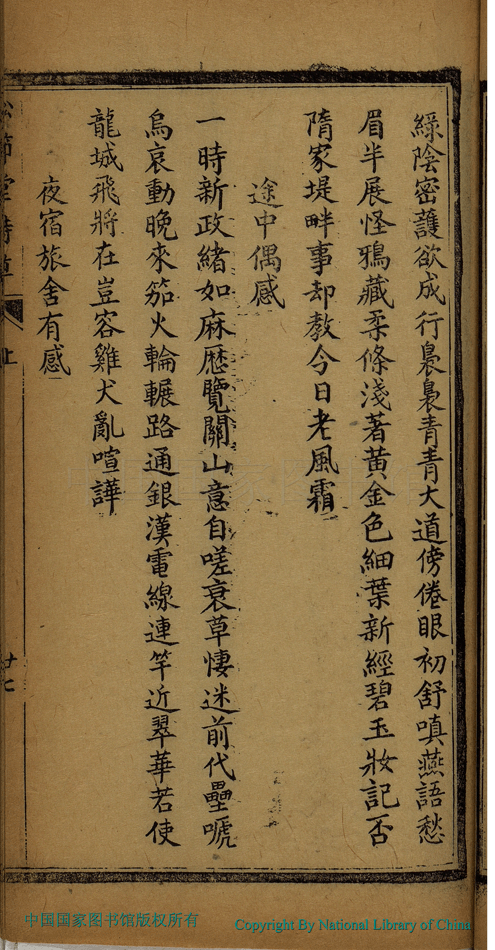 綠陰密護欲成行裊裊青青大道傍倦眼初舒嗔燕語愁
眉半展怪鴉藏柔條淺著黃金色細葉新經碧玉妝記否
隋家堤畔事却教今日老風霜
途中偶感
一時新政緒如麻歷覽關山意自嗟衰草悽迷前代壘嘶
烏哀動晚來笳火輪輾路通銀漢電線連竿近翠華若使
龍城飛將在豈容雞犬亂喧譁
夜宿旅舍有感
廿七
中国国家图书馆版权所有
Copyright By National Library of China